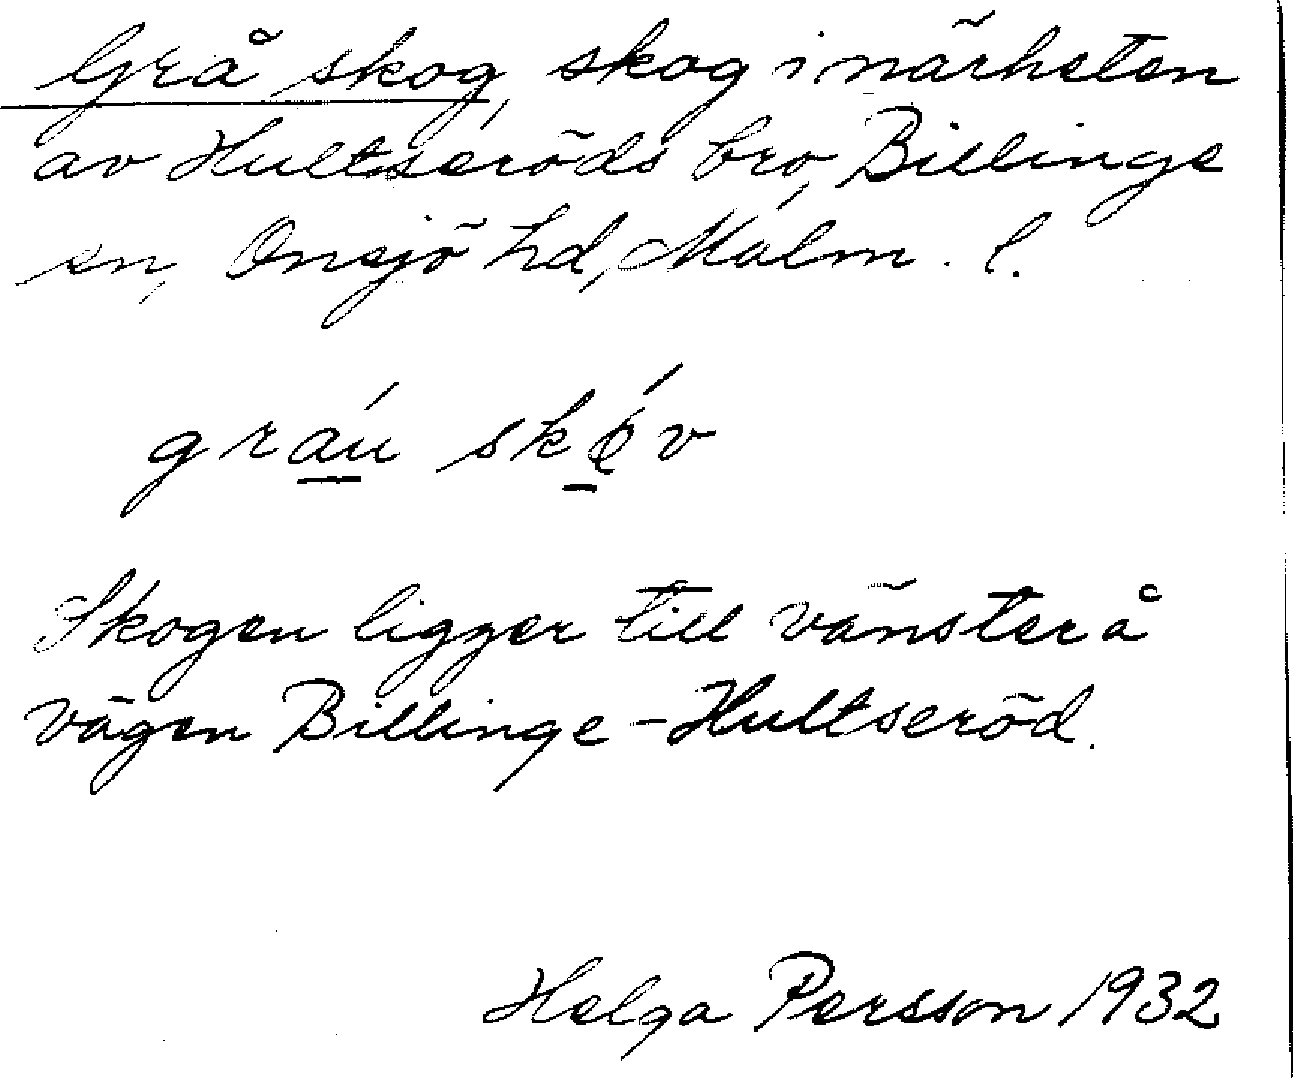 Grå skog, skog i närheten
av Hultseröds bro, Billinge
sn, Onsjö hd, Malm. l.
gráu skǿv
Skogen ligger till vänster å
vägen Billinge - Hultseröd.
Helga Persson 1932